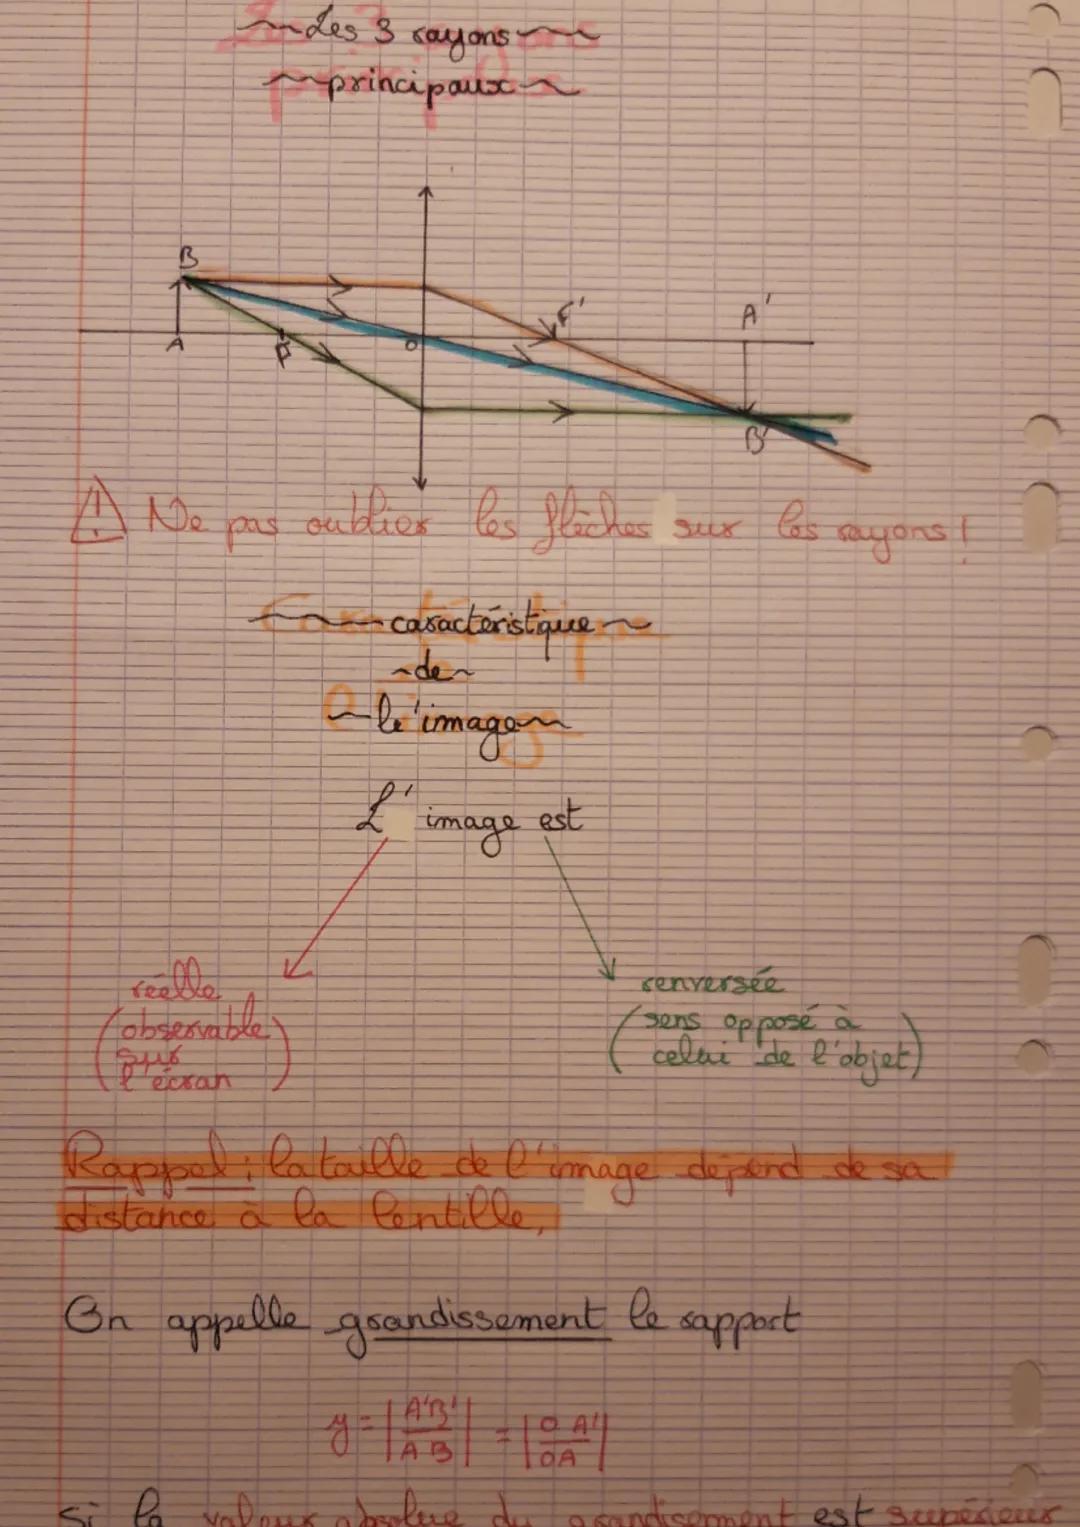 Les 3 rayons
principaux
B
F'
A'
A
F
O
B'
⚠ Ne pas oublier les flèches sur les rayons !
caractéristique
de
l'image
L'image est
réelle
(observable
sur
l'écran)
renversée
(sens opposé à
celui de l'objet)
Rappel : la taille de l'image dépend de sa
distance à la lentille,
On appelle grandissement le rapport
y = |A'B'/AB| = |OA'/OA|
Si la valeur absolue du grandissement est supérieur